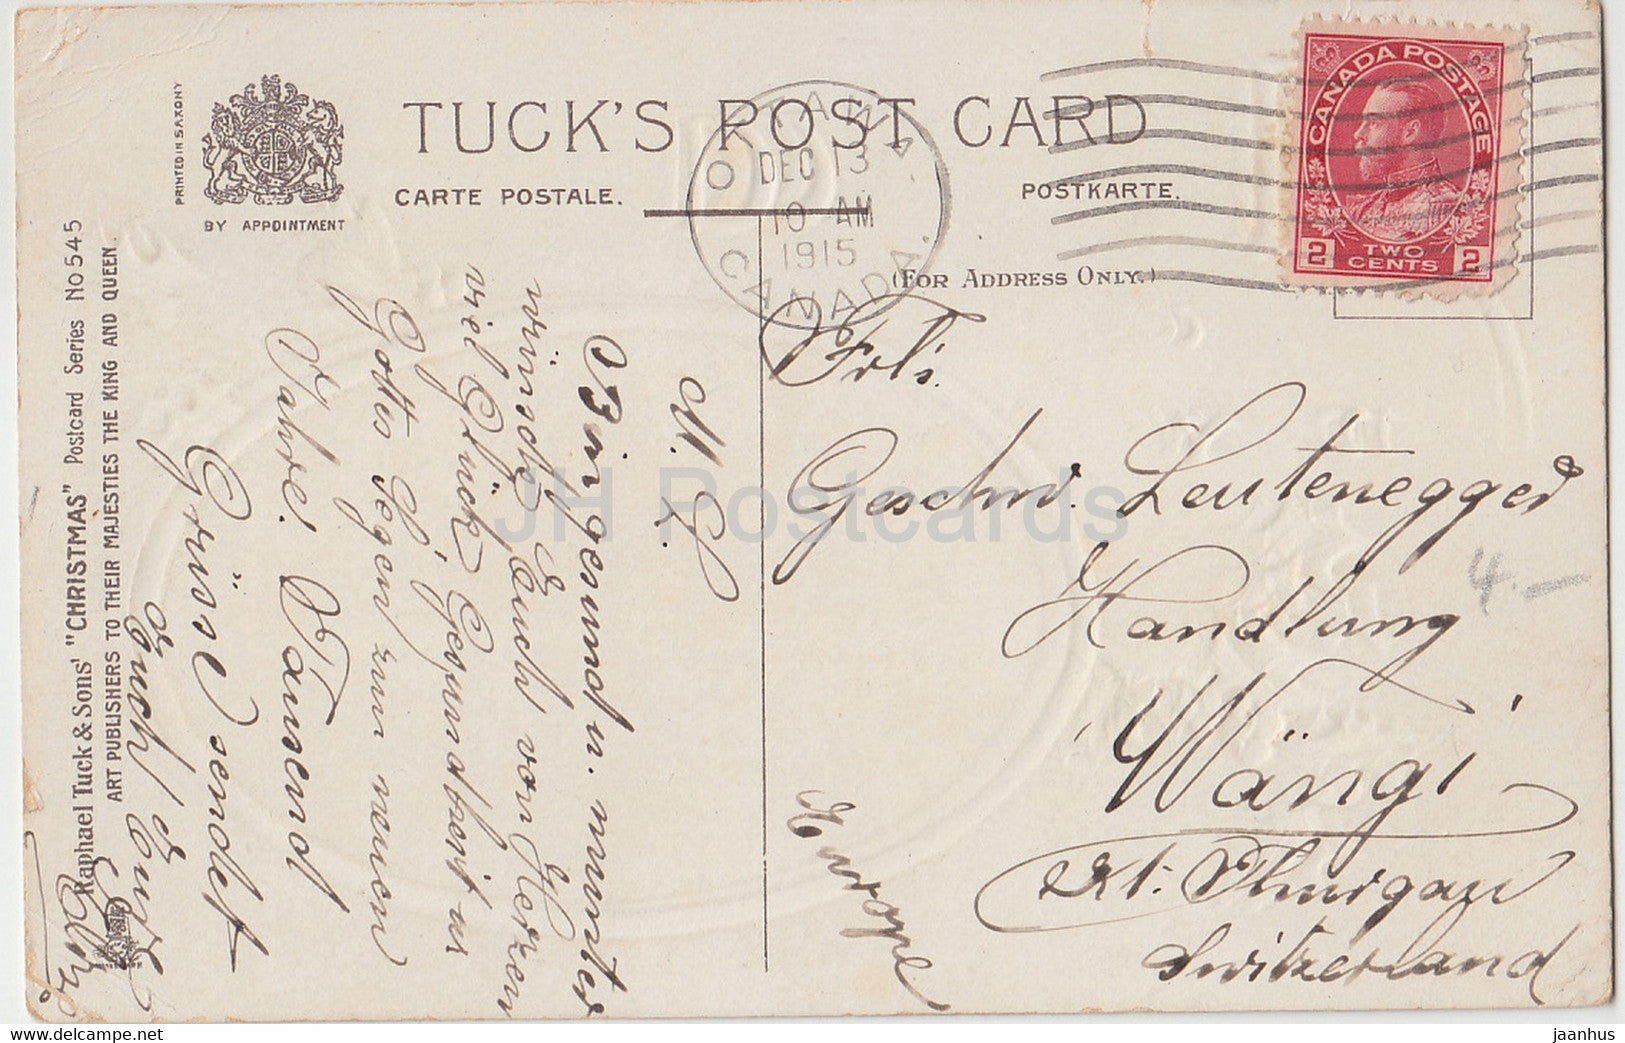 TUCK'S POST CARD
CARTE POSTALE.
POSTKARTE.
(FOR ADDRESS ONLY.)
PRINTED IN SAXONY
BY APPOINTMENT
Raphael Tuck & Sons' "CHRISTMAS" Postcard Series No 545
ART PUBLISHERS TO THEIR MAJESTIES THE KING AND QUEEN.
OTTAWA
DEC 13
10 AM
1915
CANADA
CANADA POSTAGE
2 TWO CENTS 2
M. L.
Bin gesund u. munter
wünsche Euch von Herzen
viel Glück, Gesundheit u.
Gottes Segen zum neuen
Jahre. Tausend
Grüsse sendet
Euch Eure
Frl's.
Geschw. Leutenegger
Handlung
Wängi
Kt. Thurgau
Switzerland
Europe
4.—
JH Postcards
delcampe.net
jaanhus